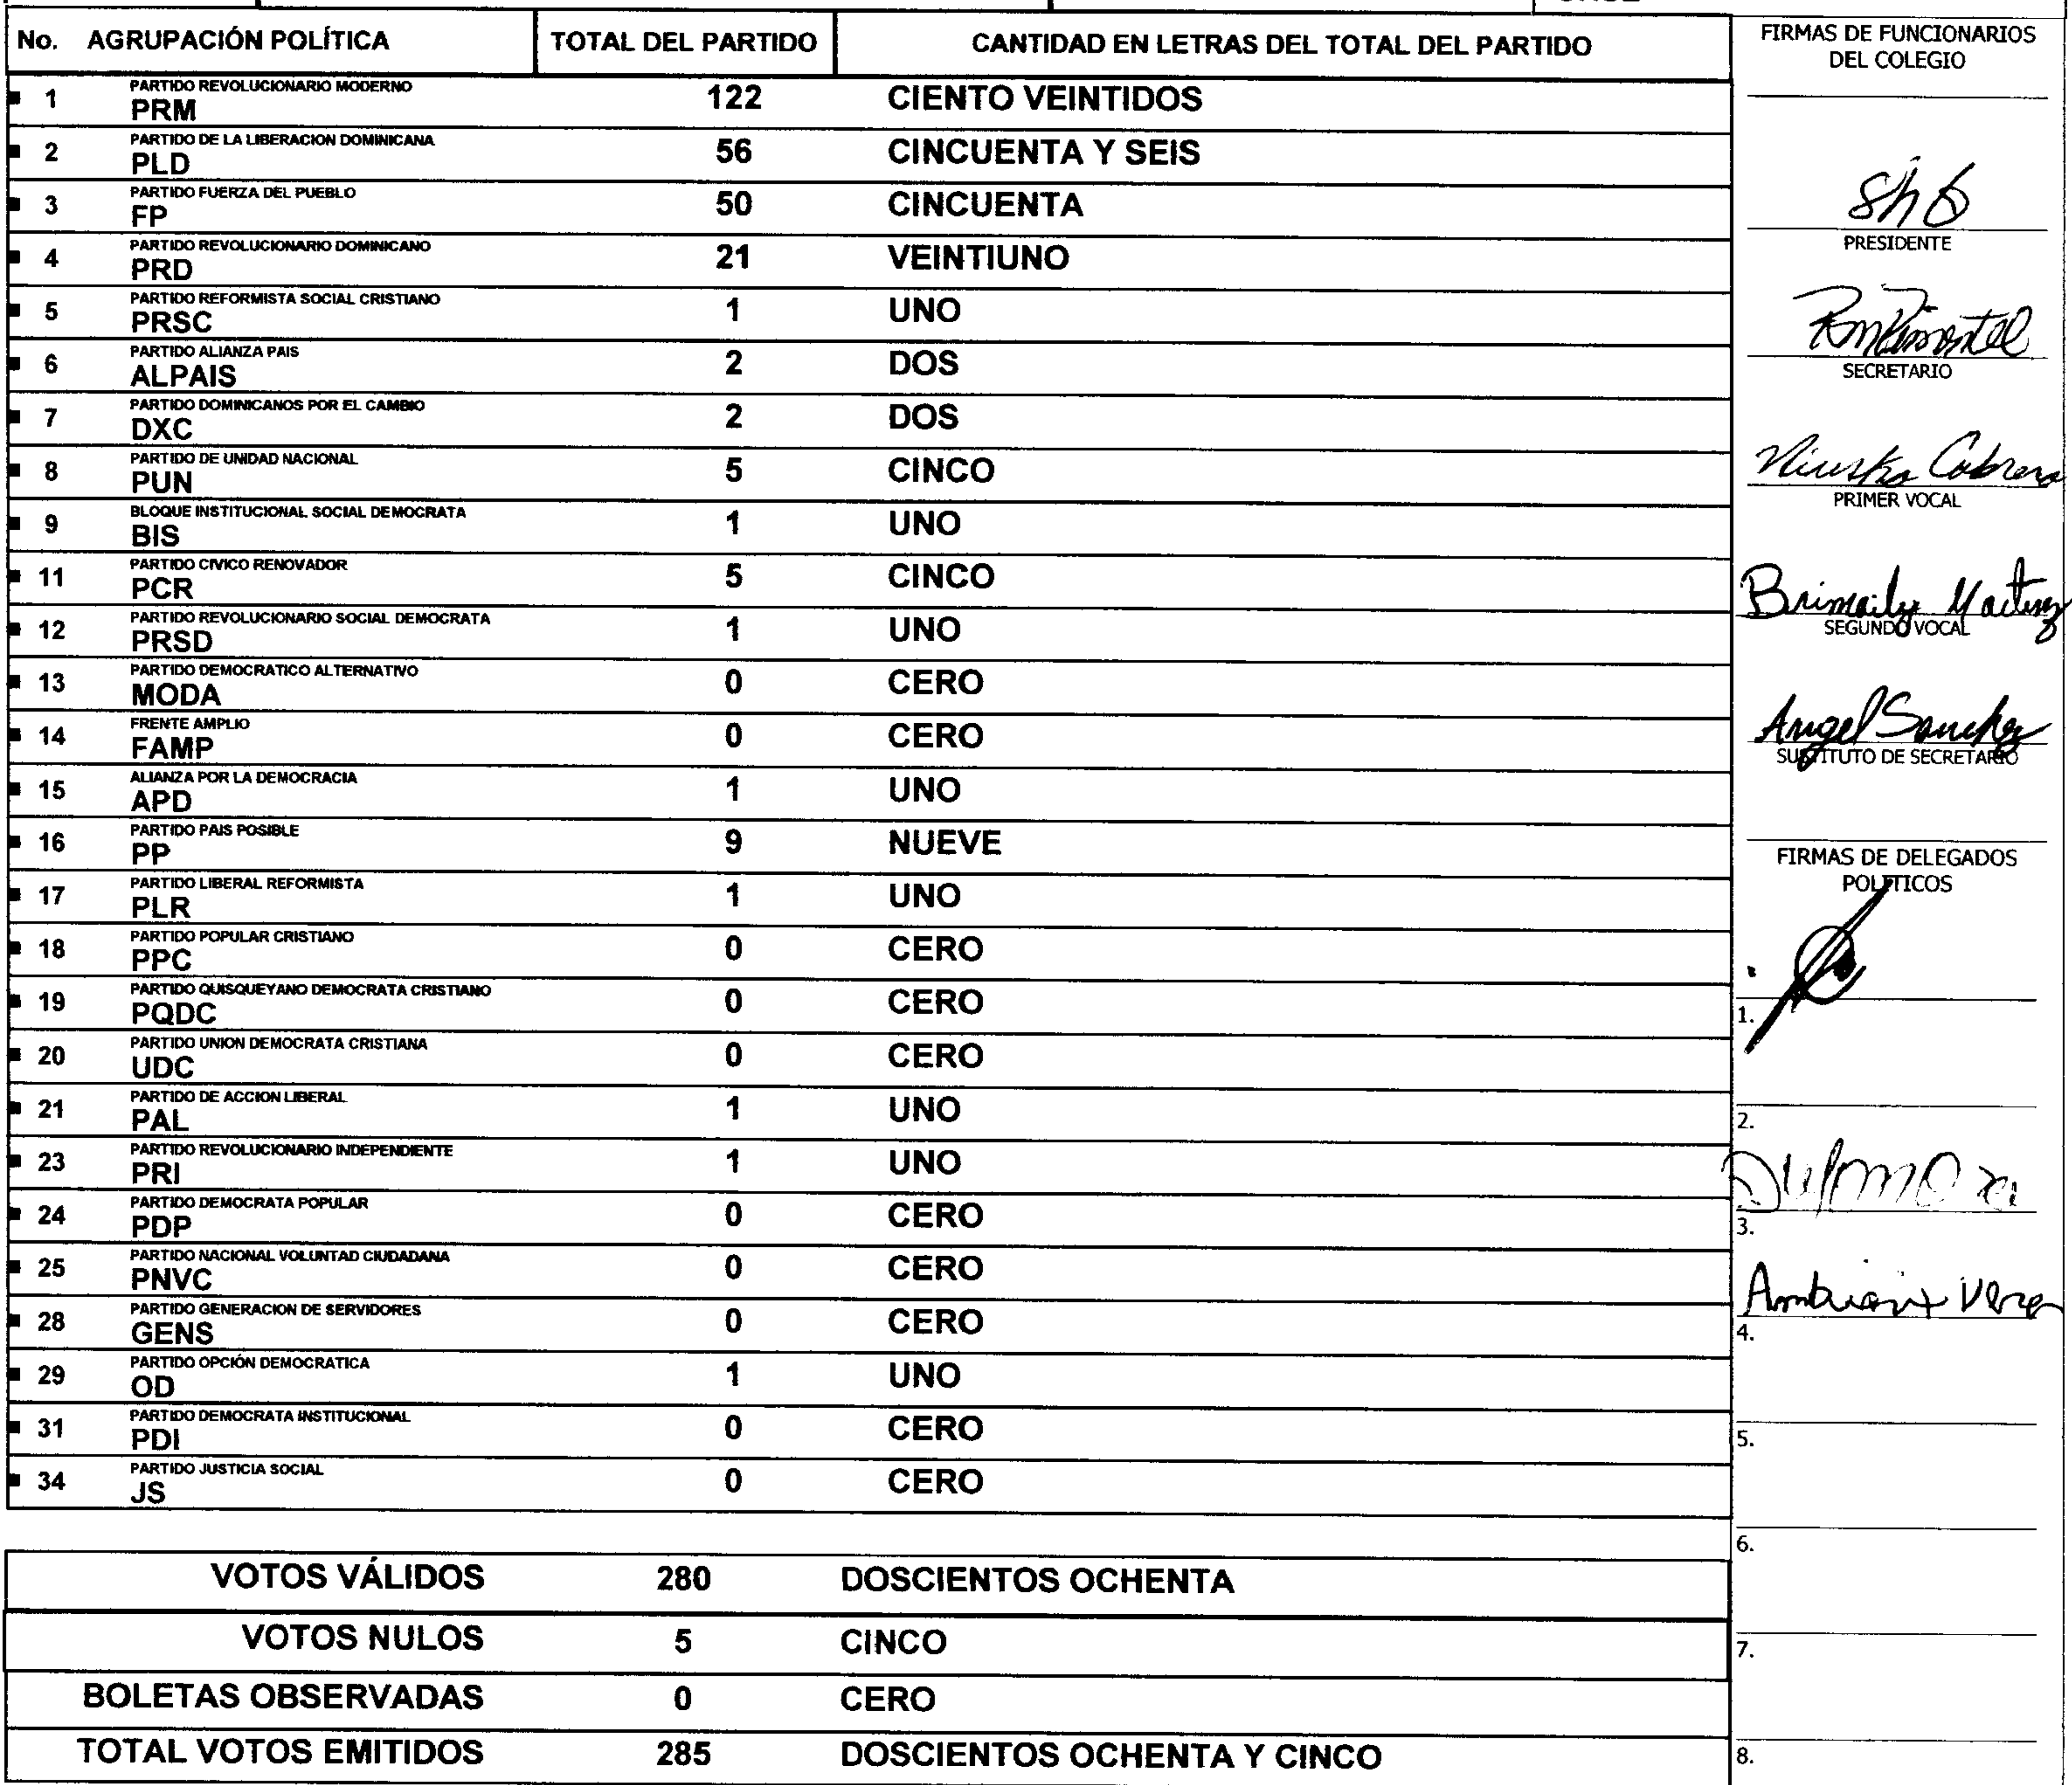 No. AGRUPACIÓN POLÍTICA TOTAL DEL PARTIDO CANTIDAD EN LETRAS DEL TOTAL DEL PARTIDO
PARTIDO REVOLUCIONARIO MODERNO
1 PRM 122 CIENTO VEINTIDOS
PARTIDO DE LA LIBERACION DOMINICANA
2 PLD 56 CINCUENTA Y SEIS
PARTIDO FUERZA DEL PUEBLO
3 FP 50 CINCUENTA
PARTIDO REVOLUCIONARIO DOMINICANO
4 PRD 21 VEINTIUNO
PARTIDO REFORMISTA SOCIAL CRISTIANO
5 PRSC 1 UNO
PARTIDO ALIANZA PAIS
6 ALPAIS 2 DOS
PARTIDO DOMINICANOS POR EL CAMBIO
7 DXC 2 DOS
PARTIDO DE UNIDAD NACIONAL
8 PUN 5 CINCO
BLOQUE INSTITUCIONAL SOCIAL DEMOCRATA
9 BIS 1 UNO
PARTIDO CIVICO RENOVADOR
11 PCR 5 CINCO
PARTIDO REVOLUCIONARIO SOCIAL DEMOCRATA
12 PRSD 1 UNO
PARTIDO DEMOCRATICO ALTERNATIVO
13 MODA 0 CERO
FRENTE AMPLIO
14 FAMP 0 CERO
ALIANZA POR LA DEMOCRACIA
15 APD 1 UNO
PARTIDO PAIS POSIBLE
16 PP 9 NUEVE
PARTIDO LIBERAL REFORMISTA
17 PLR 1 UNO
PARTIDO POPULAR CRISTIANO
18 PPC 0 CERO
PARTIDO QUISQUEYANO DEMOCRATA CRISTIANO
19 PQDC 0 CERO
PARTIDO UNION DEMOCRATA CRISTIANA
20 UDC 0 CERO
PARTIDO DE ACCION LIBERAL
21 PAL 1 UNO
PARTIDO REVOLUCIONARIO INDEPENDIENTE
23 PRI 1 UNO
PARTIDO DEMOCRATA POPULAR
24 PDP 0 CERO
PARTIDO NACIONAL VOLUNTAD CIUDADANA
25 PNVC 0 CERO
PARTIDO GENERACION DE SERVIDORES
28 GENS 0 CERO
PARTIDO OPCIÓN DEMOCRATICA
29 OD 1 UNO
PARTIDO DEMOCRATA INSTITUCIONAL
31 PDI 0 CERO
PARTIDO JUSTICIA SOCIAL
34 JS 0 CERO
VOTOS VÁLIDOS 280 DOSCIENTOS OCHENTA
VOTOS NULOS 5 CINCO
BOLETAS OBSERVADAS 0 CERO
TOTAL VOTOS EMITIDOS 285 DOSCIENTOS OCHENTA Y CINCO
FIRMAS DE FUNCIONARIOS
DEL COLEGIO
PRESIDENTE
SECRETARIO
Cabrera
PRIMER VOCAL
SEGUNDO VOCAL
Angel Sanchez
SUSTITUTO DE SECRETARIO
FIRMAS DE DELEGADOS
POLITICOS
1.
2.
3.
4.
5.
6.
7.
8.